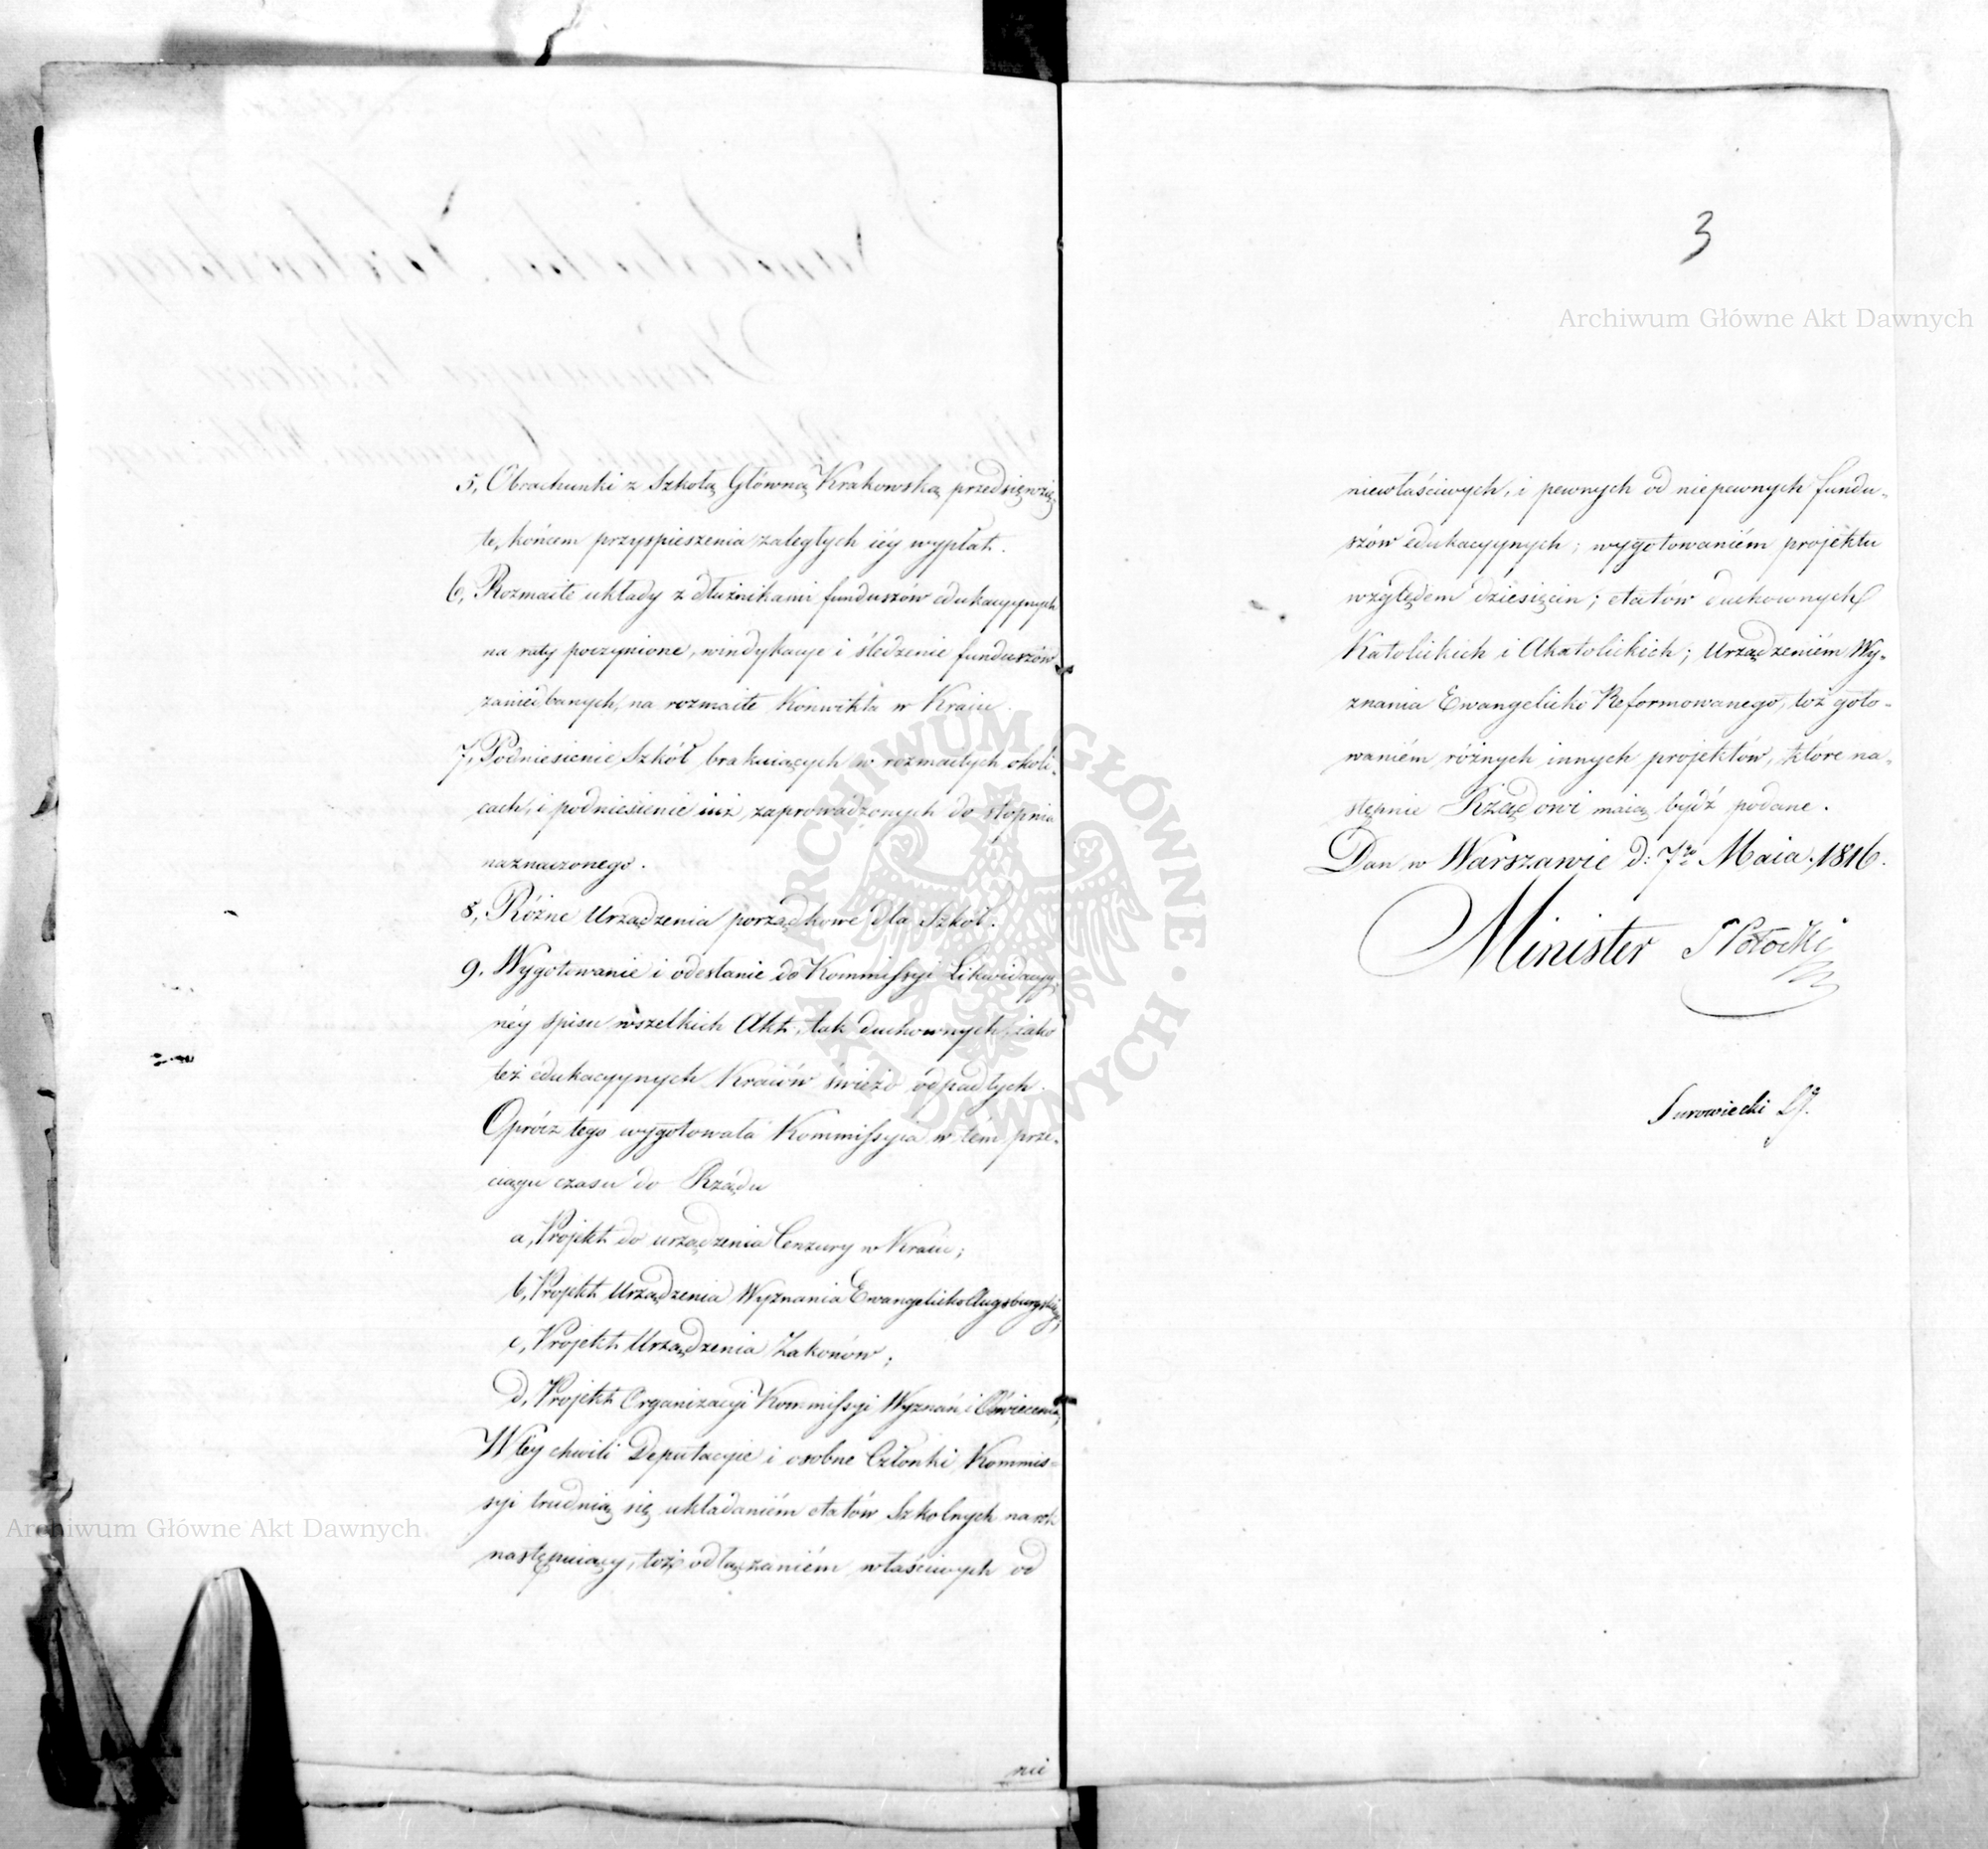 5, Obrachunki z Szkołą Główną Krakowską przedsięwzię-
te, końcem przyspieszenia zaległych iéy wypłat.
6, Rozmaite układy z dłużnikami funduszów edukacyynych
na raty poczynione, windykacye i śledzenie funduszów
zaniedbanych, na rozmaite Konwikta w Kraiu.
7, Podniesienie Szkół brakuiących w rozmaitych okoli-
cach, i podniesienie iuż zaprowadzonych do stopnia
naznaczonego.
8, Różne Urządzenia porządkowe dla Szkół.
9. Wygotowanie i odesłanie do Kommissyi Likwidacyy-
néy spisu wszelkich Akt, tak duchownych iako
też edukacyynych Kraiów świeżo odpadłych.
Oprócz tego wygotowała Kommissyia w tém prze-
ciągu czasu do Rządu
a, Projekt do urządzenia Cenzury w Kraiu;
b, Projekt Urządzenia Wyznania Ewangelicko Augsburgskiego;
c, Projekt Urządzenia Zakonów;
d, Projekt Organizacyi Kommissyi Wyznań i Oświecenia,
W téy chwili Deputacyie i osobne Członki Kommis-
syi trudnią się układaniém etatów Szkolnych na rok
następuiący, toż odłączaniém właściwych od
nie
3
Archiwum Główne Akt Dawnych
niewłaściwych, i pewnych od niepewnych fundu-
szów edukacyynych; wygotowaniém projektu
względem dziesięcin; etatów duchownych
Katolickich i Akatolickich; Urządzeniém Wy-
znania Ewangelicko Reformowanego, toż goto-
waniém różnych innych projektów, które na-
stępnie Rządowi maią bydź podane.
Dan w Warszawie d: 7go Maia 1816.
Minister S Potocki
Surowiecki
ARCHIWUM GŁÓWNE AKT DAWNYCH
Archiwum Główne Akt Dawnych